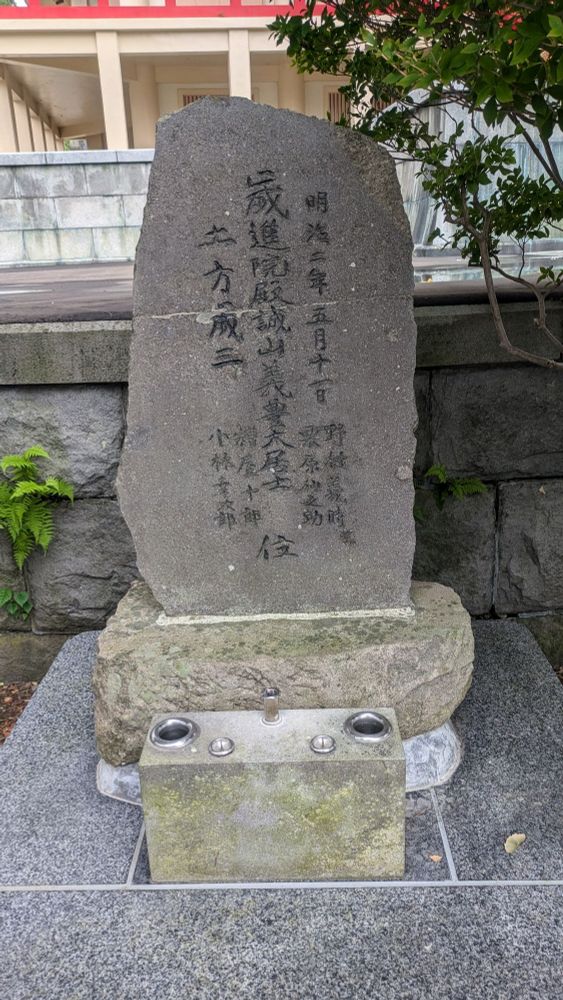 明治二年五月十一日
歳進院殿誠山義豊大居士
土方歳三
野村義時
栗原仙之助
糟屋十郎
小林幸次郎
位